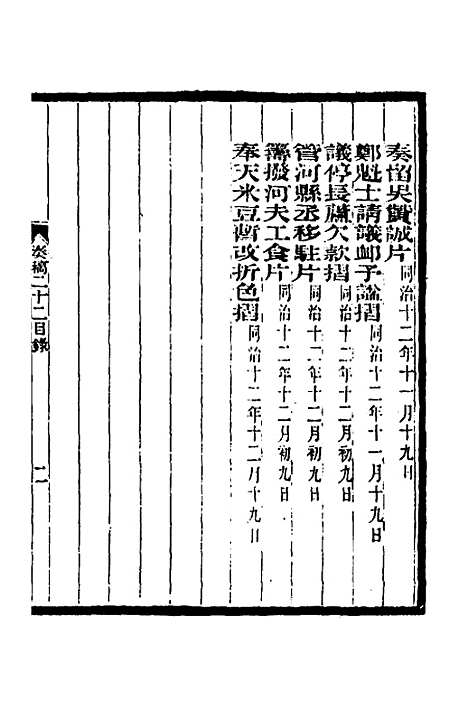 奏留吳贊誠片同治十二年十一月十九日
鄭魁士請議卹予諡摺同治十二年十一月十九日
議停長蘆欠款摺同治十二年十二月初九日
管河縣丞移駐片同治十二年十二月初九日
籌撥河夫工食片同治十二年十二月初九日
奉天米豆暫改折色摺同治十二年十二月十九日
奏稿二十二目錄
二